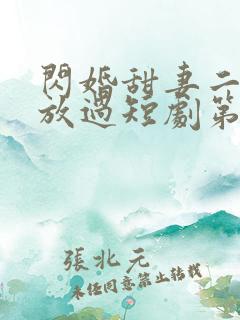 閃婚甜妻二
放過短劇第
張北元
未經同意禁止轉載